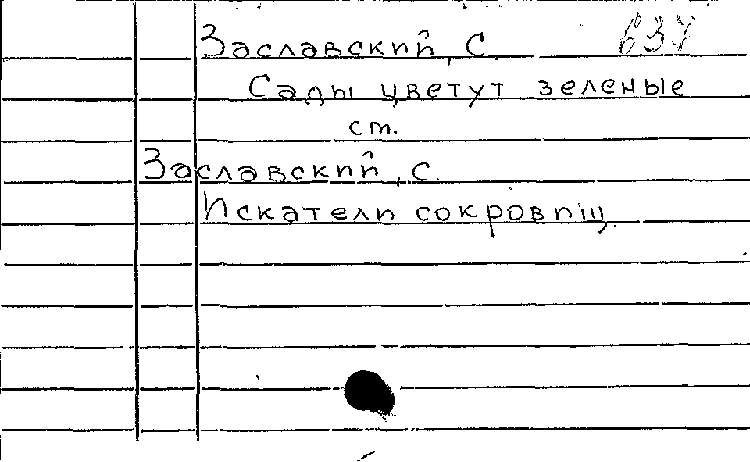 Заславский, С. 637
Сады цветут зеленые
ст.
Заславский, С.
Искатели сокровищ.